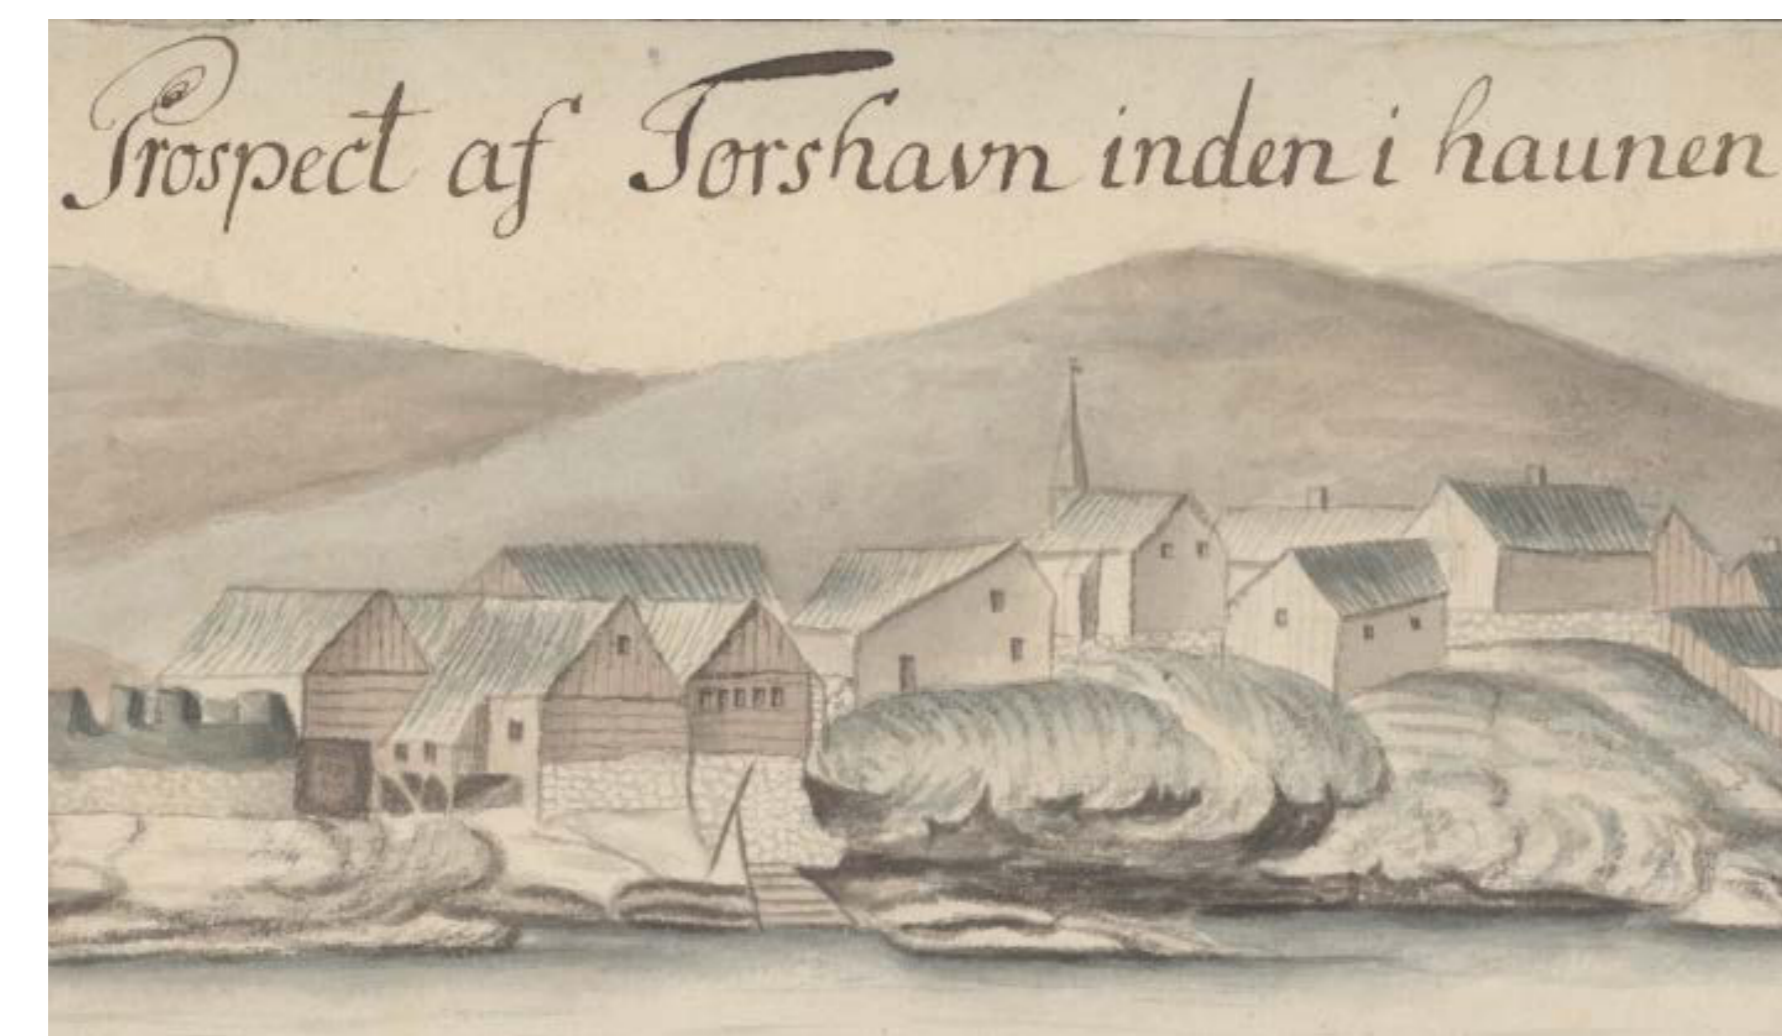 Prospect af Torshavn inden i haunen